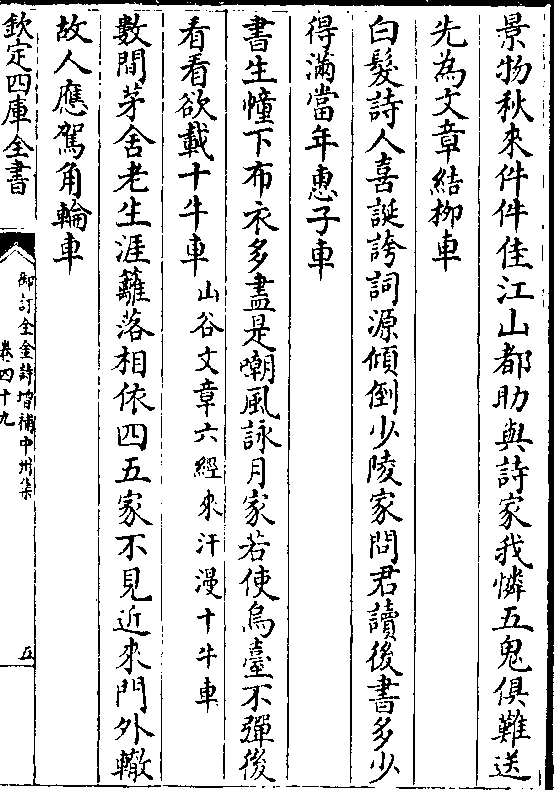 景物秋來件件佳江山都助與詩家我憐五鬼俱難送
先為文章結栁車
白髮詩人喜誕誇詞源傾倒少陵家問君讀後書多少
得滿當年惠子車
書生幢下布衣多盡是嘲風詠月家若使烏臺不彈後
看看欲載十牛車山谷文章六經來汗漫十牛車
數間茅舍老生涯籬落相依四五家不見近來門外轍
故人應駕角輪車
欽定四庫全書
御訂全金詩增補中州集
卷四十九
五